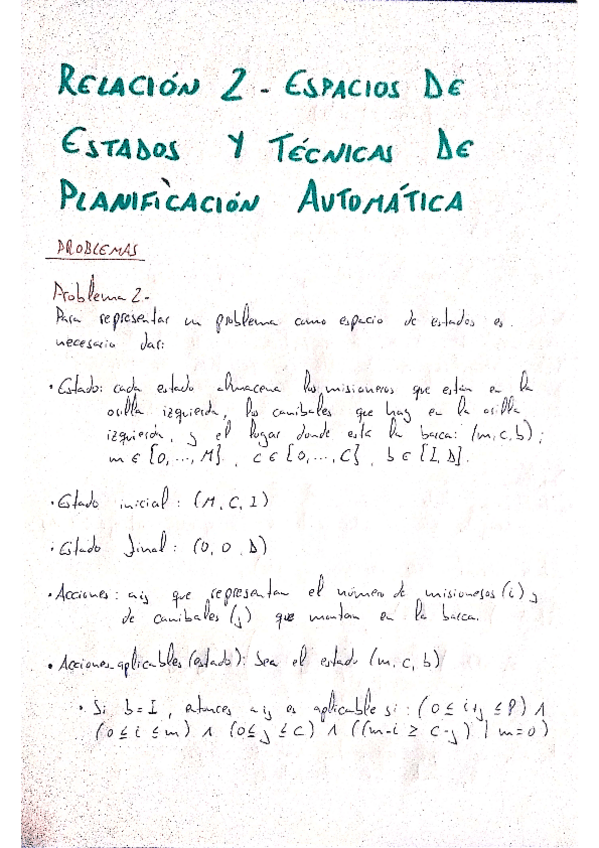 RELACIÓN 2 - ESPACIOS DE
ESTADOS Y TÉCNICAS DE
PLANIFICACIÓN AUTOMÁTICA
PROBLEMAS
Problema 2.-
Para representar un problema como espacio de estados es
necesario dar:
· Estado: cada estado almacena los misioneros que están en la
orilla izquierda, los canibales que hay en la orilla
izquierda, y el lugar donde está la barca: (m,c,b);
m ∈ {0, ..., M}, c ∈ {0, ..., C}, b ∈ {I, D}.
· Estado inicial: (M, C, I)
· Estado final: (0, 0, D)
· Acciones: aij que representan el número de misioneros (i) y
de canibales (j) que montan en la barca.
· Acciones_aplicables (estado): Sea el estado (m, c, b)
· Si b=I, entonces aij es aplicable si: (0 ≤ i+j ≤ P) ∧
(0 ≤ i ≤ m) ∧ (0 ≤ j ≤ C) ∧ ((m-i ≥ c-j) | m=0)